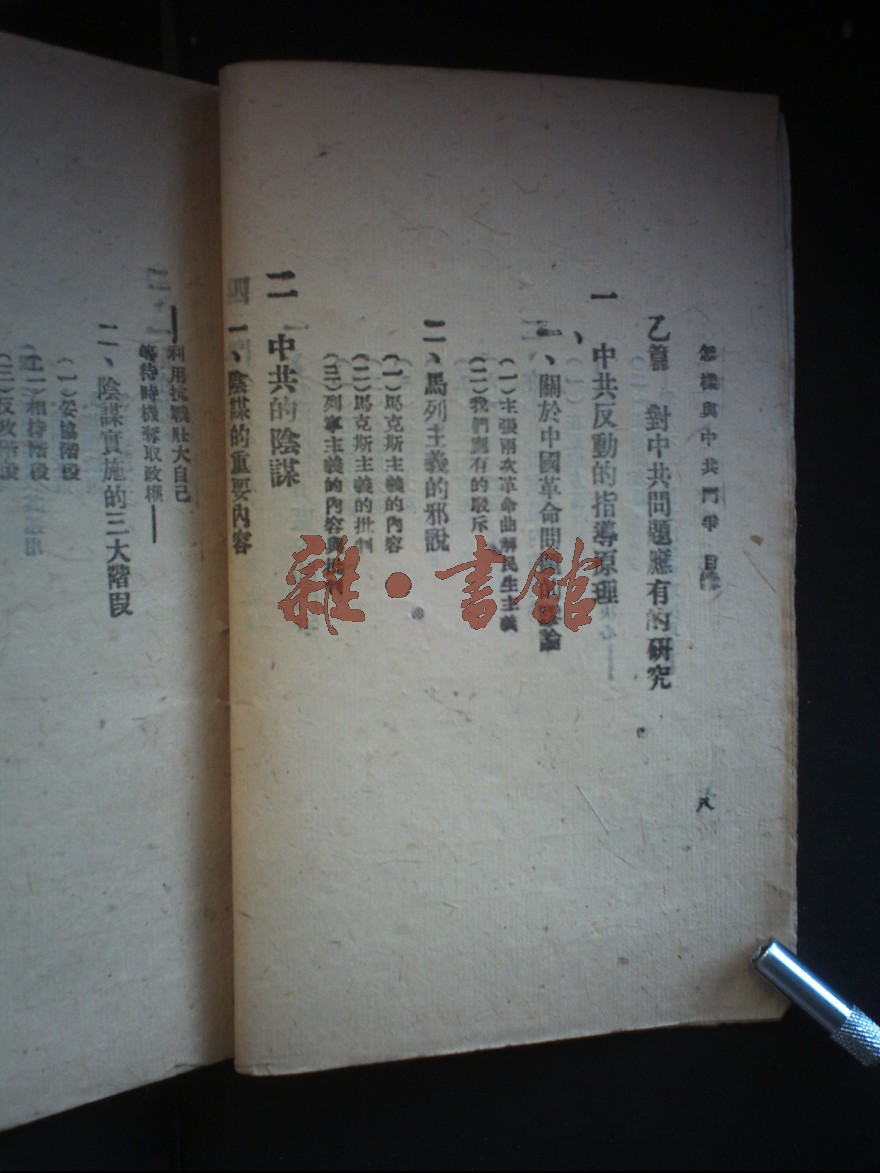 怎樣與中共鬥爭 目錄
八
乙篇 對中共問題應有的研究
一、中共反動的指導原理
一、關於中國革命問題的謬論
(一)主張兩次革命曲解民生主義
(二)我們應有的駁斥
二、馬列主義的邪說
(一)馬克斯主義的內容
(二)馬克斯主義的批判
(三)列寧主義的內容與批判
二 中共的陰謀
一、陰謀的重要內容
——利用抗戰壯大自己
等待時機奪取政權——
二、陰謀實施的三大階段
(一)妥協階段
(二)相持階段
(三)反攻階段
雜·書館